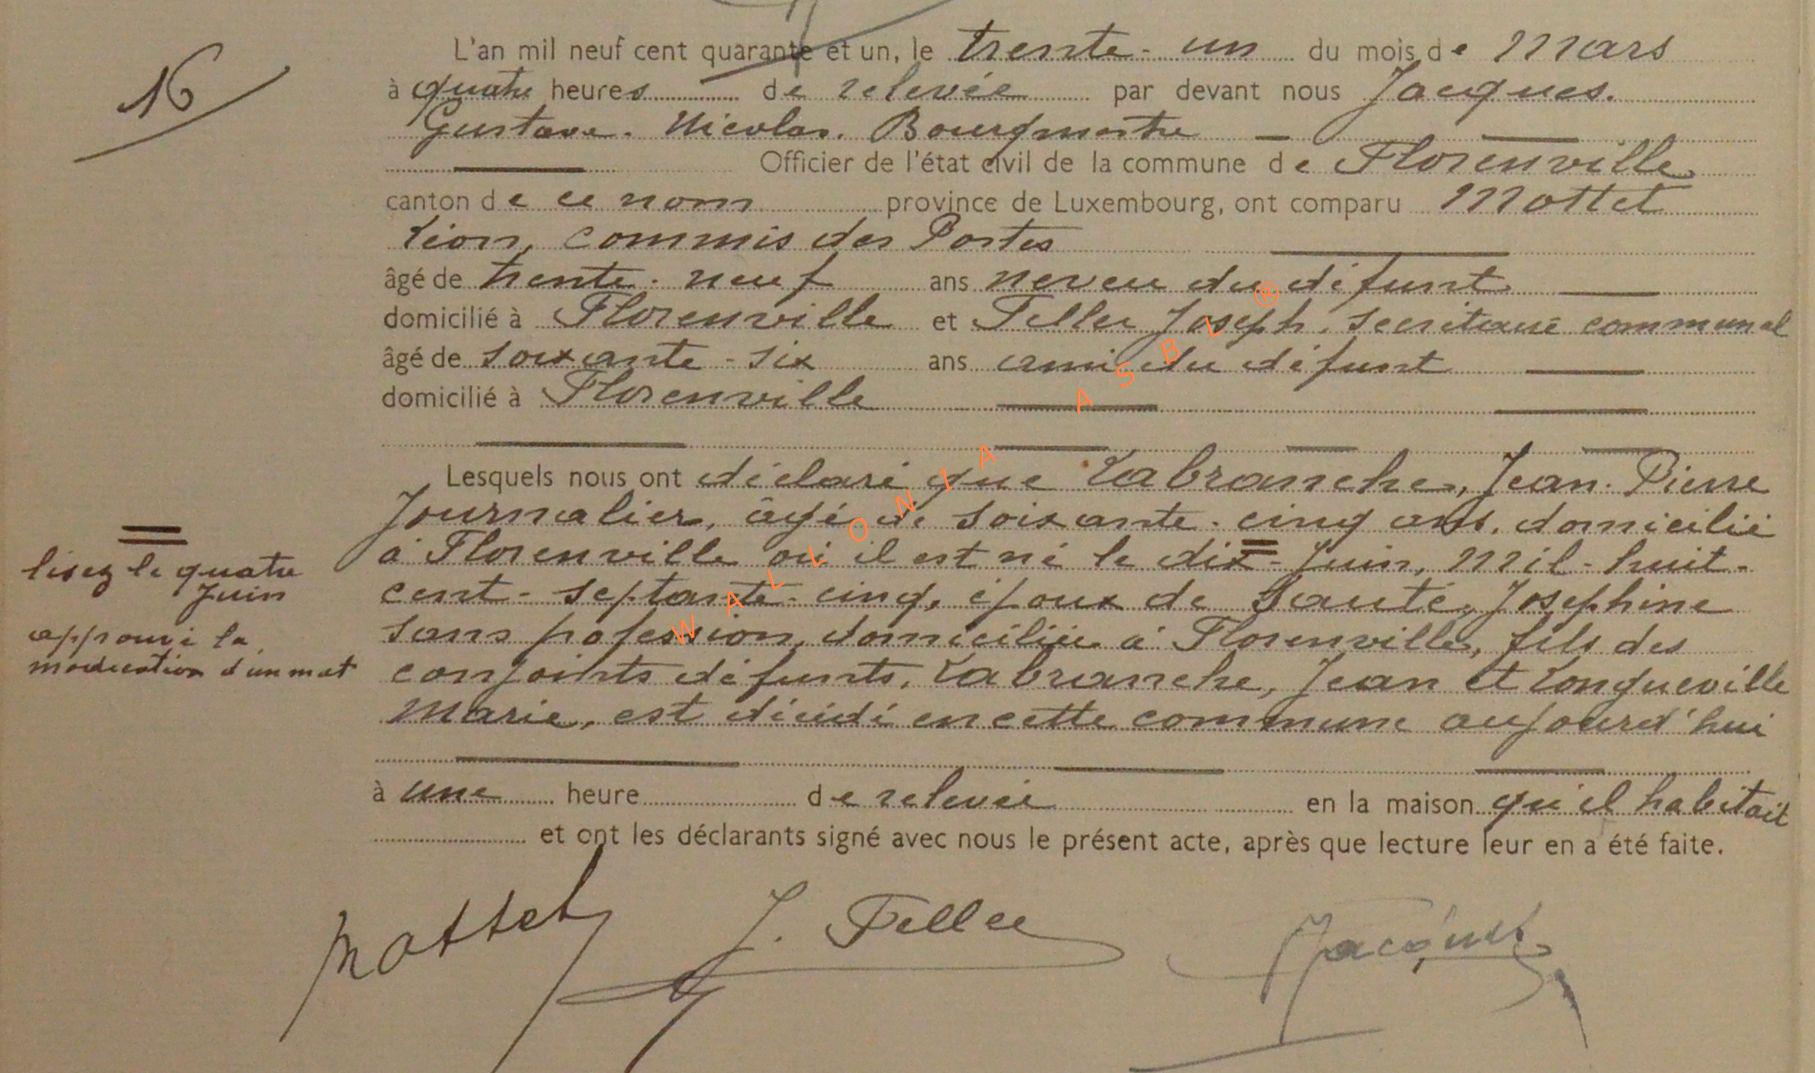 16
L'an mil neuf cent quarante et un, le trente-un du mois de Mars
à quatre heures de relevée par devant nous Jacques.
Gustave. Nicolas. Bourgmestre
Officier de l'état civil de la commune de Florenville
canton de ce nom province de Luxembourg, ont comparu Mottet
Léon, commis des Postes
âgé de trente-neuf ans neveu du défunt
domicilié à Florenville et Feller Joseph, secrétaire communal
âgé de soixante-six ans ami du défunt
domicilié à Florenville
Lesquels nous ont déclaré que Labranche, Jean-Pierre
Journalier, âgé de soixante-cinq ans, domicilié
à Florenville où il est né le dix-Juin, mil-huit-
cent-septante-cinq, époux de Sauté, Joséphine
sans profession, domiciliée à Florenville, fils des
conjoints défunts, Labranche, Jean et Longueville
Marie, est décédé en cette commune aujourd'hui
à une heure de relevée en la maison qu'il habitait
et ont les déclarants signé avec nous le présent acte, après que lecture leur en a été faite.
lisez le quatre
Juin
approuvé la
modication d'un mot
Mottet J. Feller Jacques
WALLONIA ASBL ®